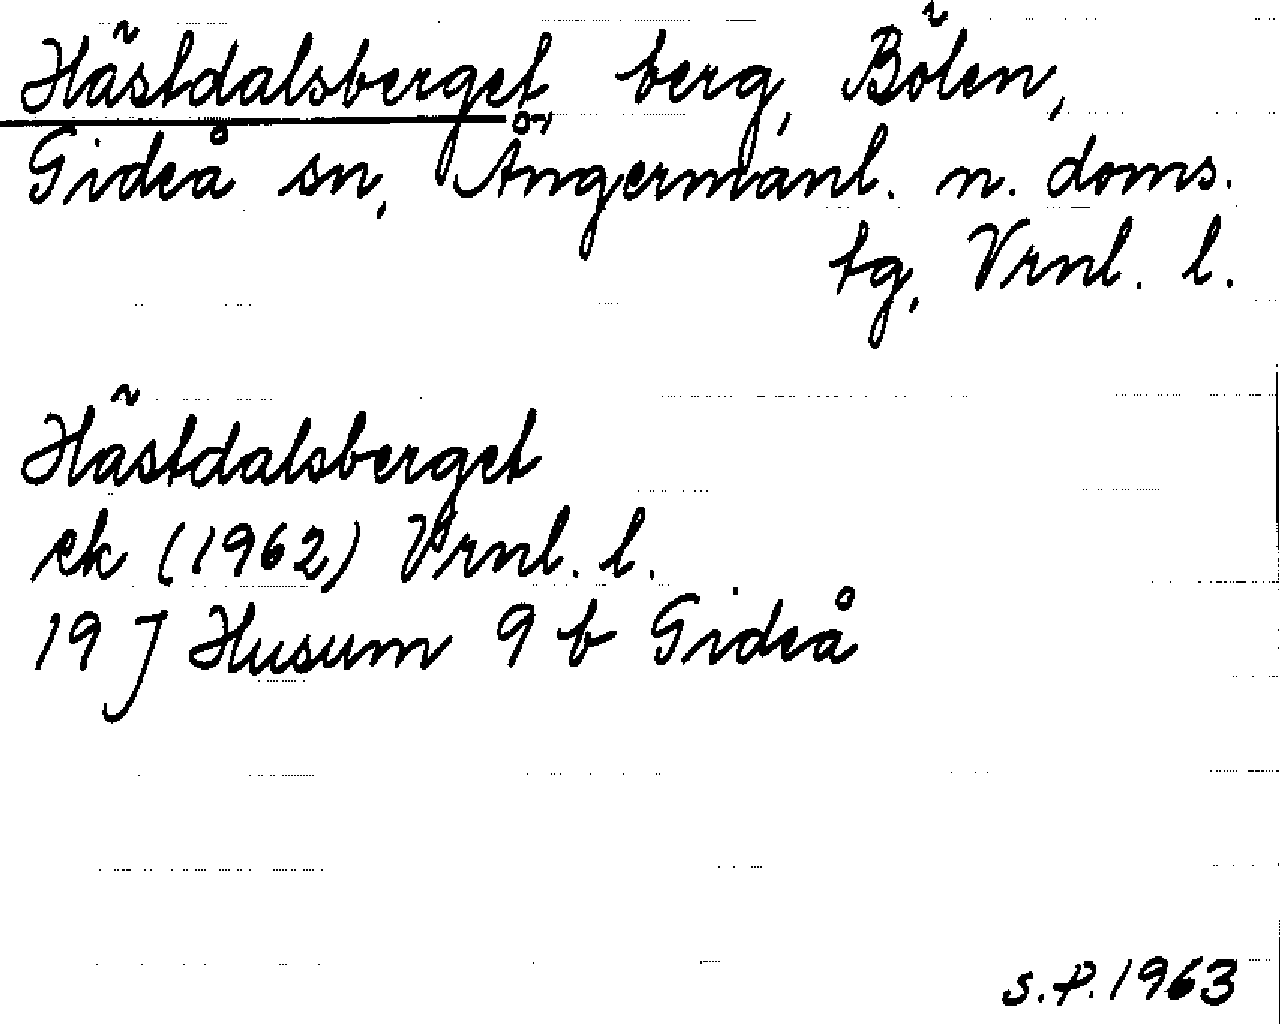 Hästdalsberget, berg, Bölen,
Gideå sn, Ångermanl. n. doms.
tg, Vrnl. l.
Hästdalsberget
ek (1962) Vrnl. l.
19 J Husum 9 b Gideå
S.P. 1963